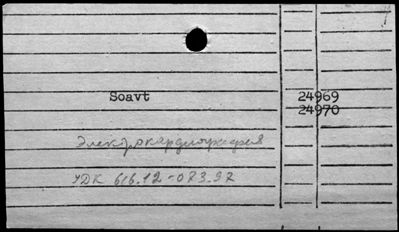 Soavt
24969
24970
Электрокардиография
УДК 616.12-073.97